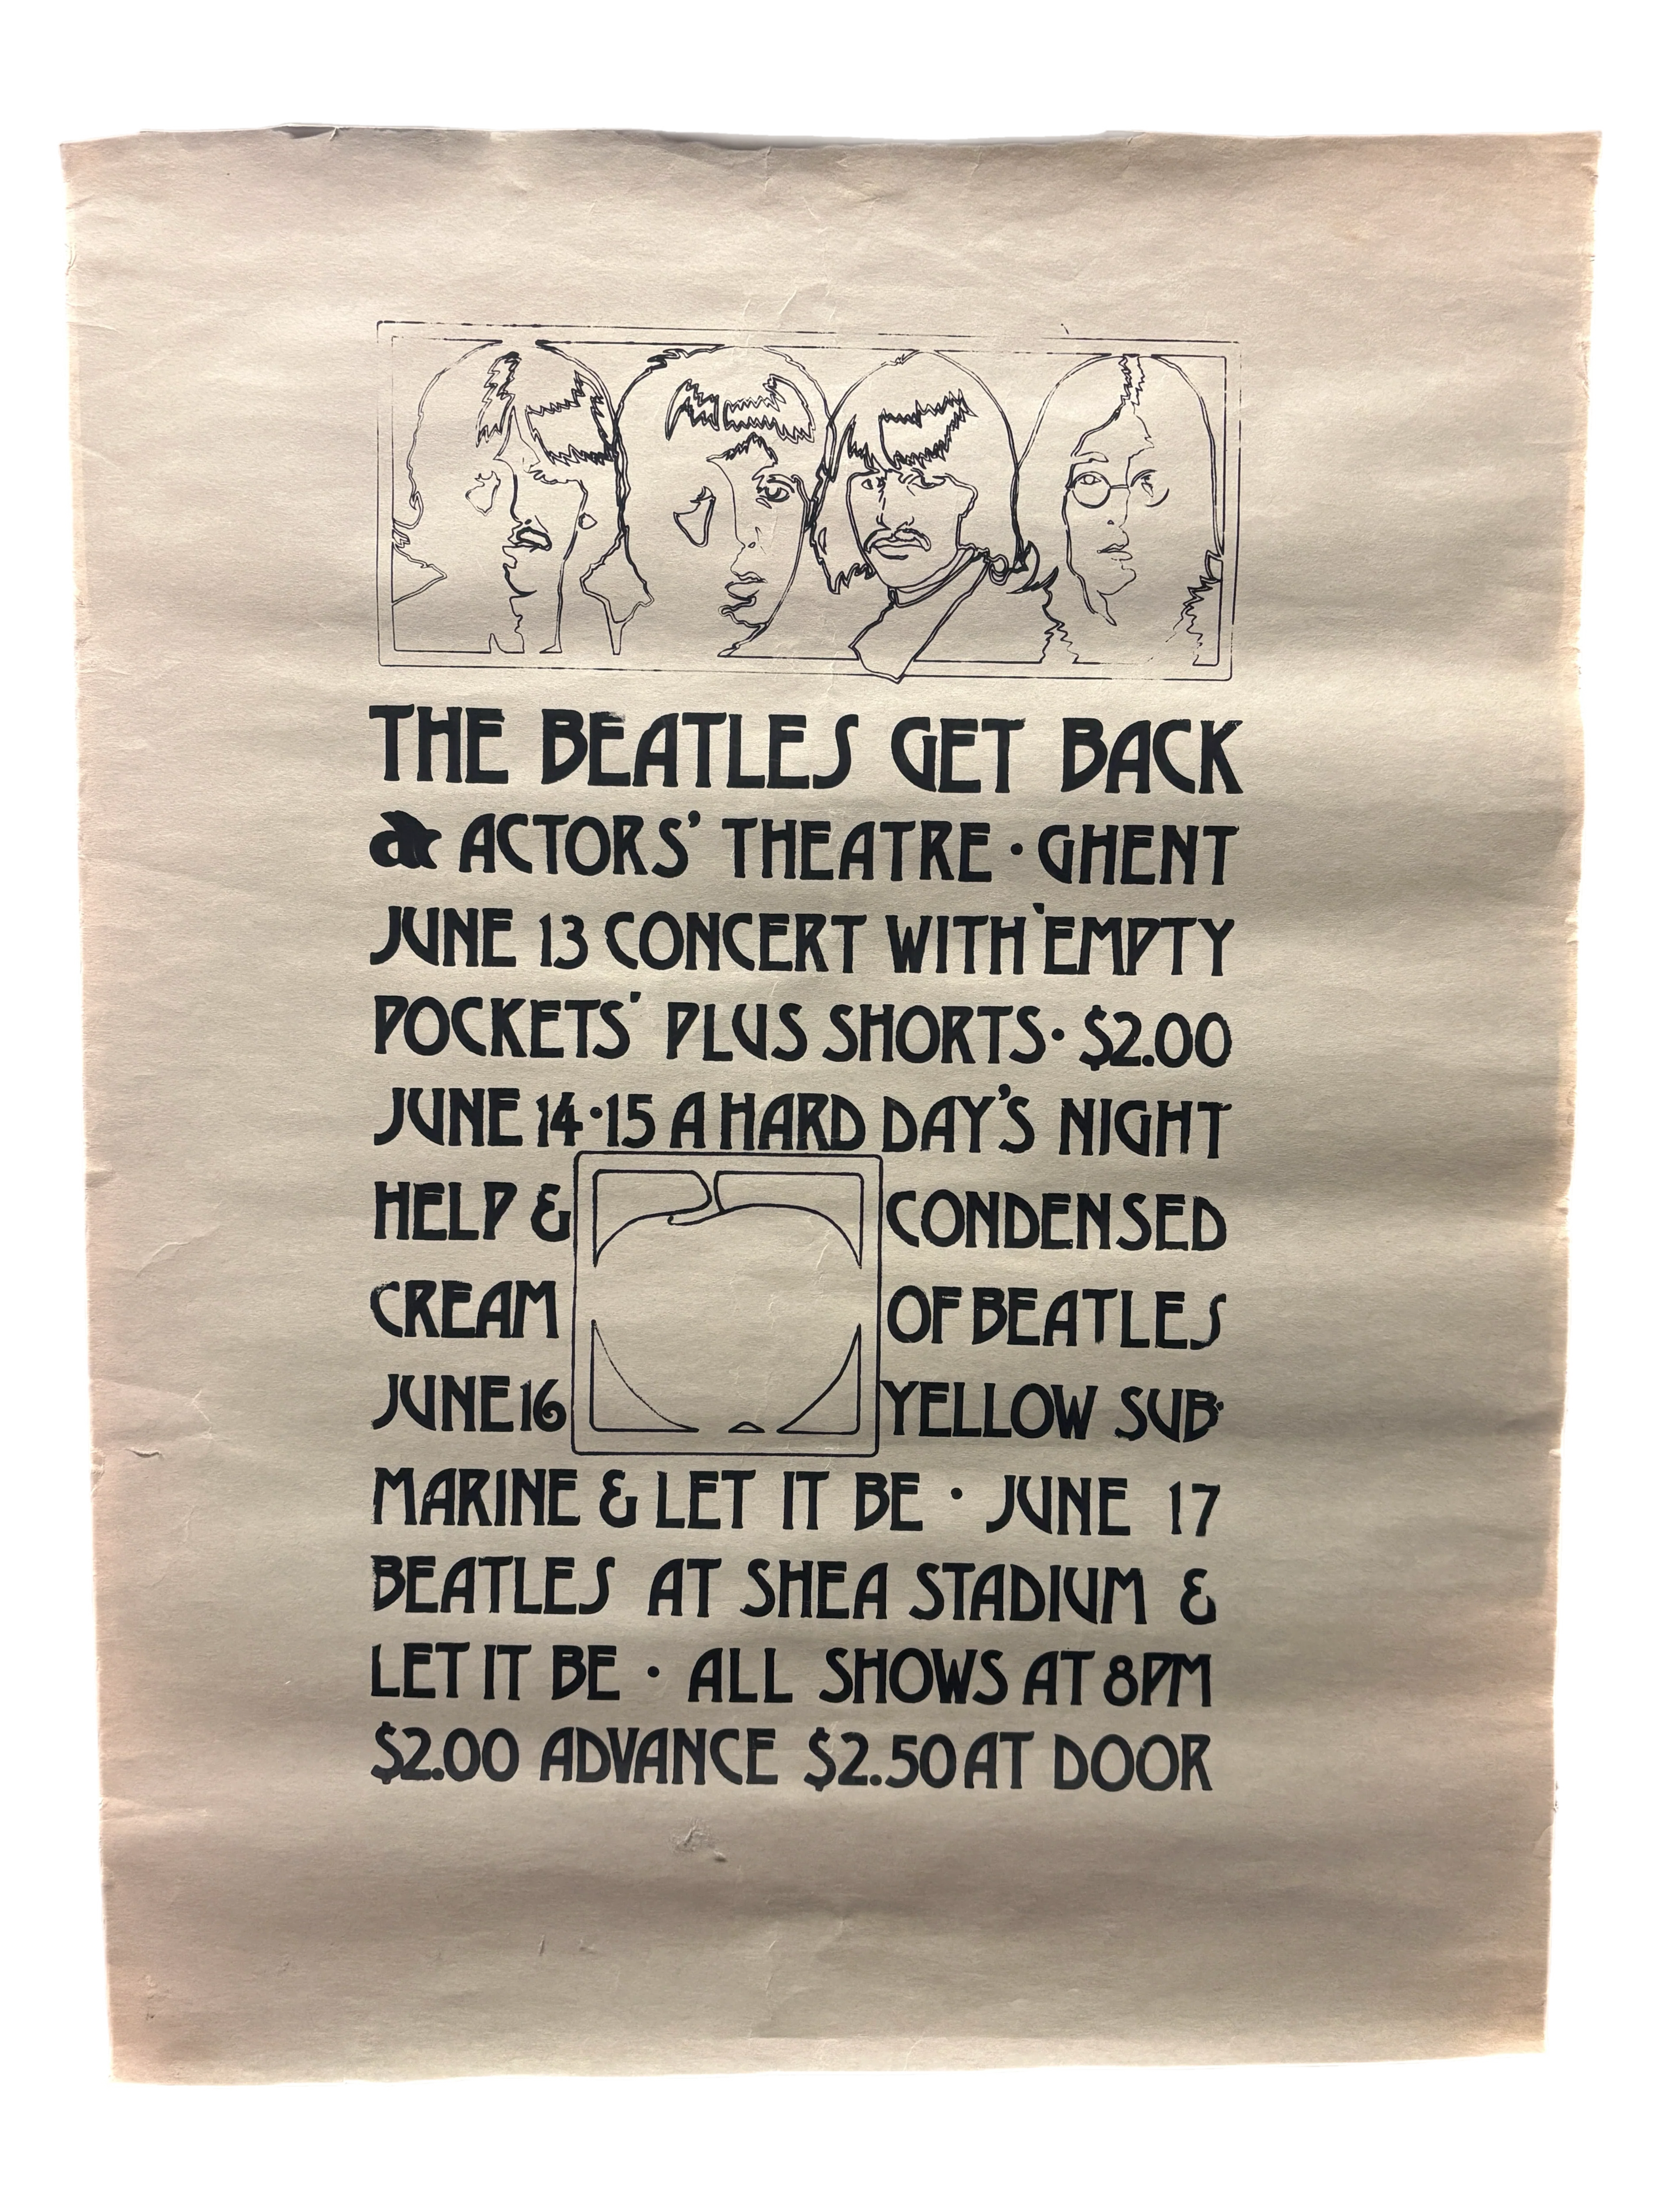 THE BEATLES GET BACK
at ACTORS' THEATRE • GHENT
JUNE 13 CONCERT WITH 'EMPTY
POCKETS' PLUS SHORTS • $2.00
JUNE 14•15 A HARD DAY'S NIGHT
HELP & CONDENSED
CREAM OF BEATLES
JUNE 16 YELLOW SUB•
MARINE & LET IT BE • JUNE 17
BEATLES AT SHEA STADIUM &
LET IT BE • ALL SHOWS AT 8PM
$2.00 ADVANCE $2.50 AT DOOR